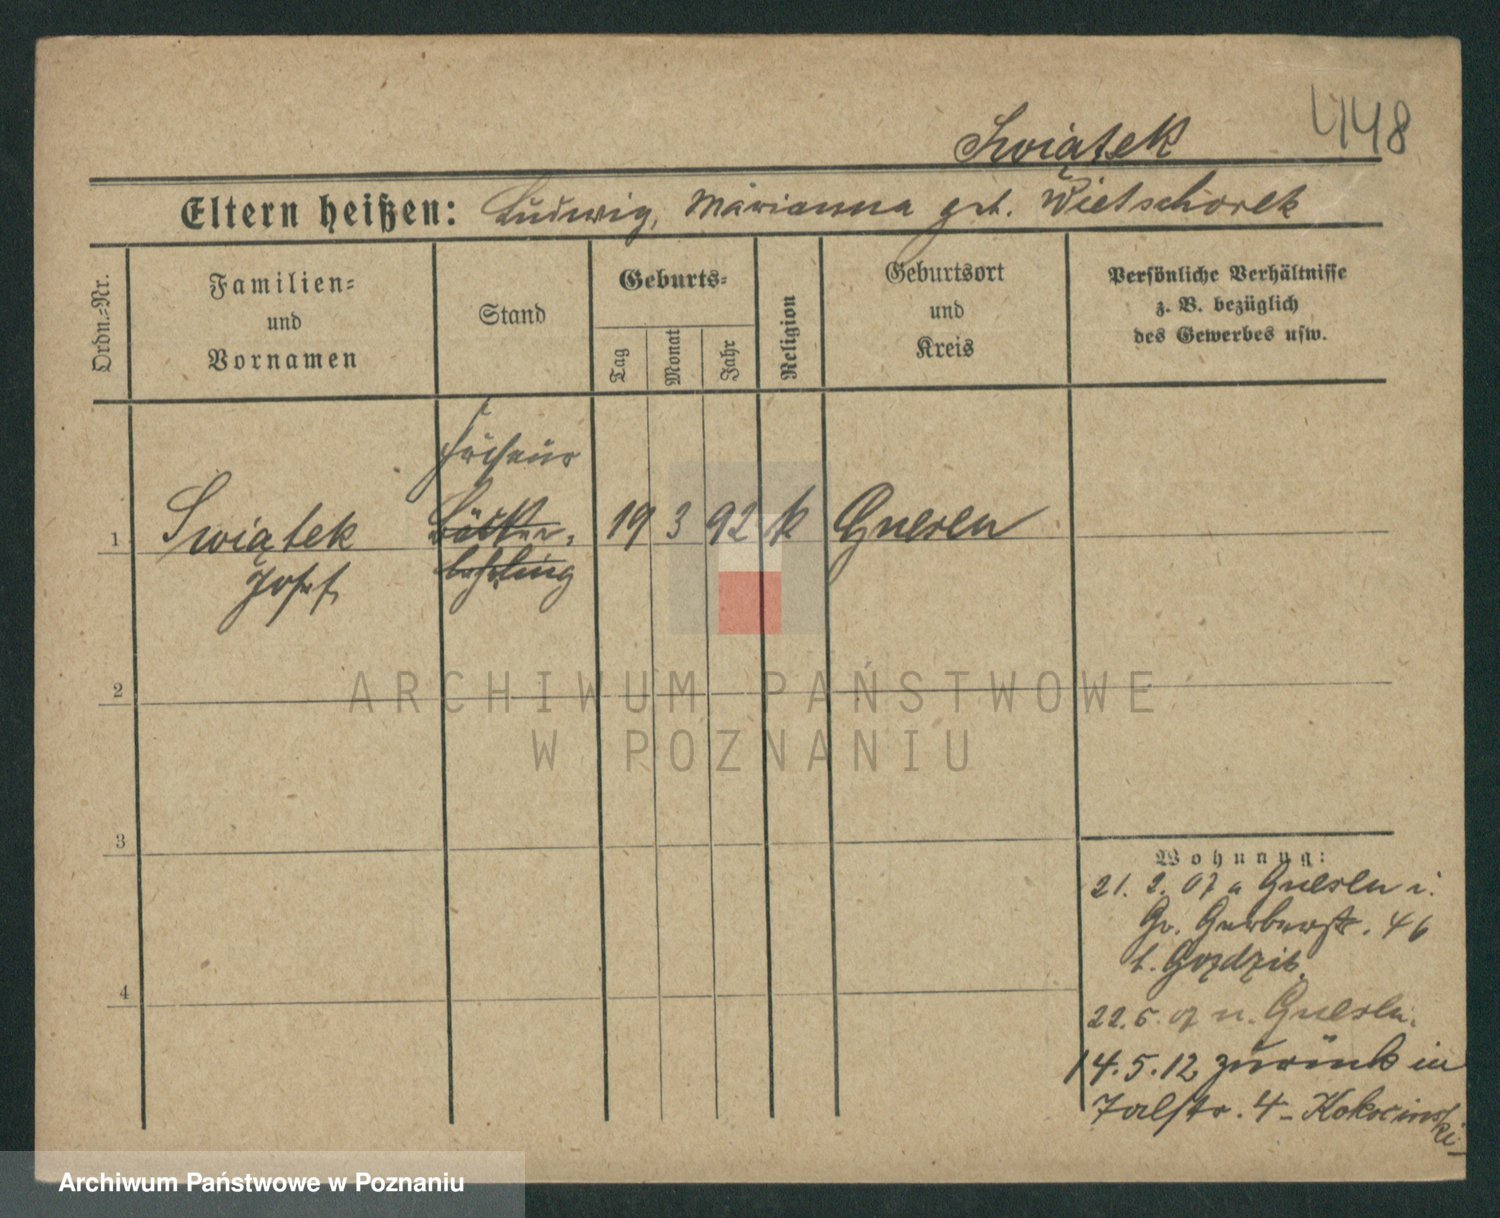 448
Swiątek
Eltern heißen: Ludwig, Marianna geb. Wietschorek
Ordn.-Nr.
Familien-
und
Vornamen
Stand
Geburts-
Tag
Monat
Jahr
Religion
Geburtsort
und
Kreis
Persönliche Verhältnisse
z. B. bezüglich
des Gewerbes usw.
Friseur
1 Swiątek Bäcker- 19 3 92 k Gnesen
Josef lehrling
2
3
4
Wohnung:
21. 2. 07 a Gnesen i.
Gr. Gerberstr. 46
b. Gozdzik
22. 5. 07 n. Gnesen.
14. 5. 12 zurück in
Talstr. 4 - Kokocinski
ARCHIWUM PAŃSTWOWE
W POZNANIU
Archiwum Państwowe w Poznaniu